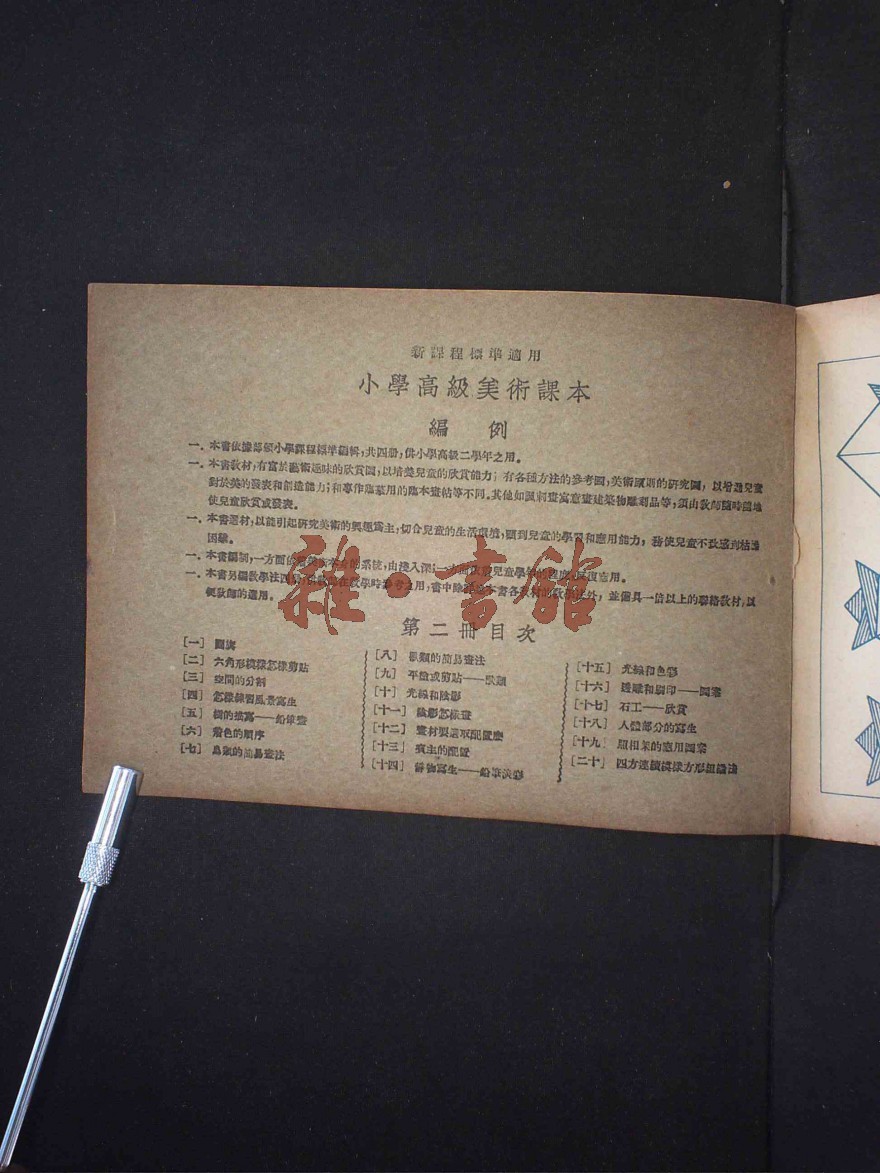 新課程標準適用
小學高級美術課本
編例
一．本書依據部頒小學課程標準編輯，共四册，供小學高級二學年之用。
一．本書教材，有富於藝術趣味的欣賞圖，以培養兒童的欣賞能力；有各種方法的參考圖，美術原則的研究圖，以增進兒童
對於美的發表和創造能力；和專作臨摹用的臨本畫帖等不同。其他如諷刺畫寓意畫建築物雕刻品等，須由教師隨時隨地
使兒童欣賞或發表。
一．本書選材，以能引起研究美術的興趣爲主，切合兒童的生活環境，顧到兒童的學習和應用能力，務使兒童不致感到枯燥
困難。
一．本書編制，一方面依照美術本身的系統，由淺入深；一方面依照兒童學習的程度，反復應用。
一．本書另編教學法四册，供教師在教學時參考之用，書中除詳述本書各教材的教學法外，並備具一倍以上的聯絡教材，以
便教師的選用。
雜·書館
第二冊目次
［一］ 圓與
［二］ 六角形模樣怎樣剪貼
［三］ 空間的分割
［四］ 怎樣練習風景寫生
［五］ 樹的描寫——鉛筆畫
［六］ 着色的順序
［七］ 鳥獸的簡易畫法
［八］ 獸類的簡易畫法
［九］ 平塗或剪貼——獸類
［十］ 光線和陰影
［十一］ 陰影怎樣畫
［十二］ 畫材要選取配置麽
［十三］ 賓主的配置
［十四］ 靜物寫生——鉛筆淡彩
［十五］ 光線和色彩
［十六］ 透雕和刷印——圖案
［十七］ 石工——欣賞
［十八］ 人體部分的寫生
［十九］ 照相架的應用圖案
［二十］ 四方連續模樣方形組織法